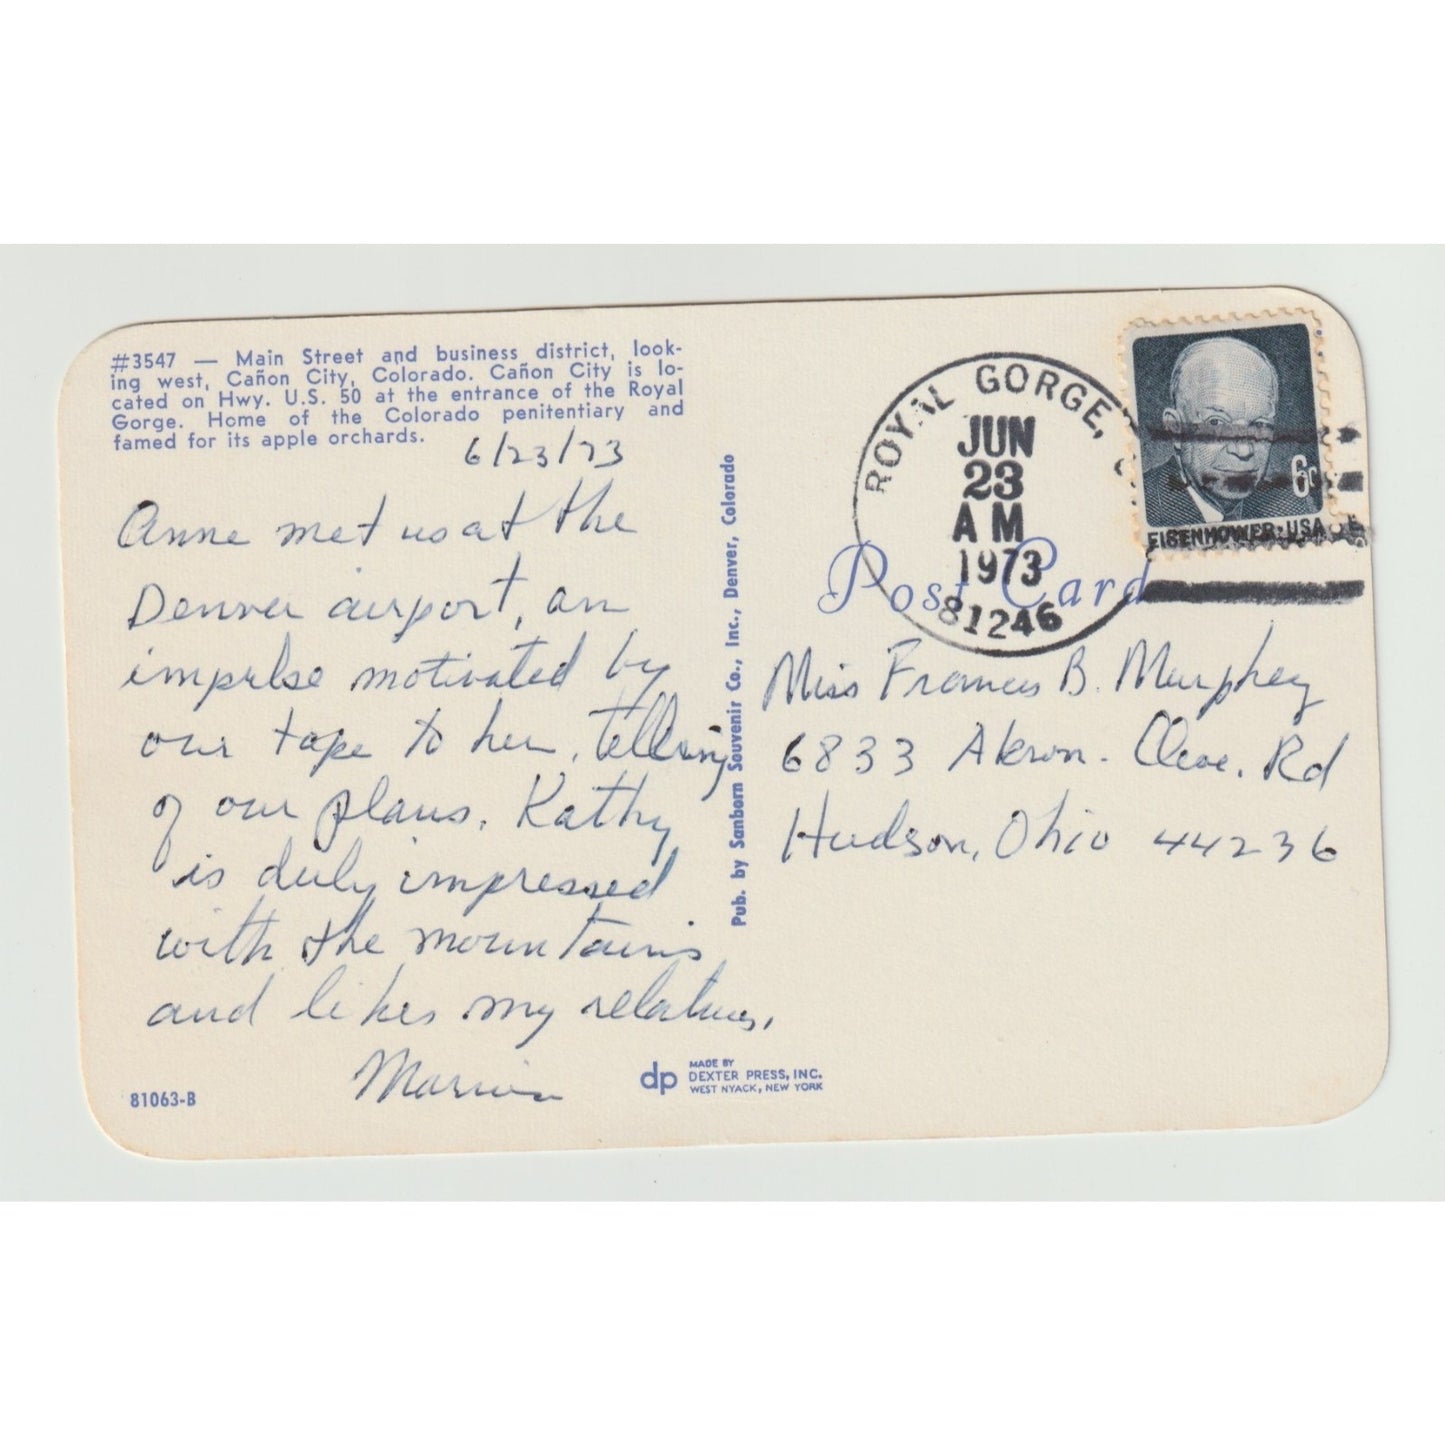 #3547 — Main Street and business district, look-
ing west, Cañon City, Colorado. Cañon City is lo-
cated on Hwy. U.S. 50 at the entrance of the Royal
Gorge. Home of the Colorado penitentiary and
famed for its apple orchards.
6/23/73
Anne met us at the
Denver airport, an
impulse motivated by
our tape to her, telling
of our plans. Kathy
is duly impressed
with the mountains
and likes my relatives.
Marion
81063-B
Pub. by Sanborn Souvenir Co., Inc., Denver, Colorado
dp
MADE BY
DEXTER PRESS, INC.
WEST NYACK, NEW YORK
ROYAL GORGE,
JUN
23
AM
1973
81246
6c
EISENHOWER·USA
Post Card
Miss Frances B. Murphey
6833 Akron-Cleve. Rd
Hudson, Ohio 44236